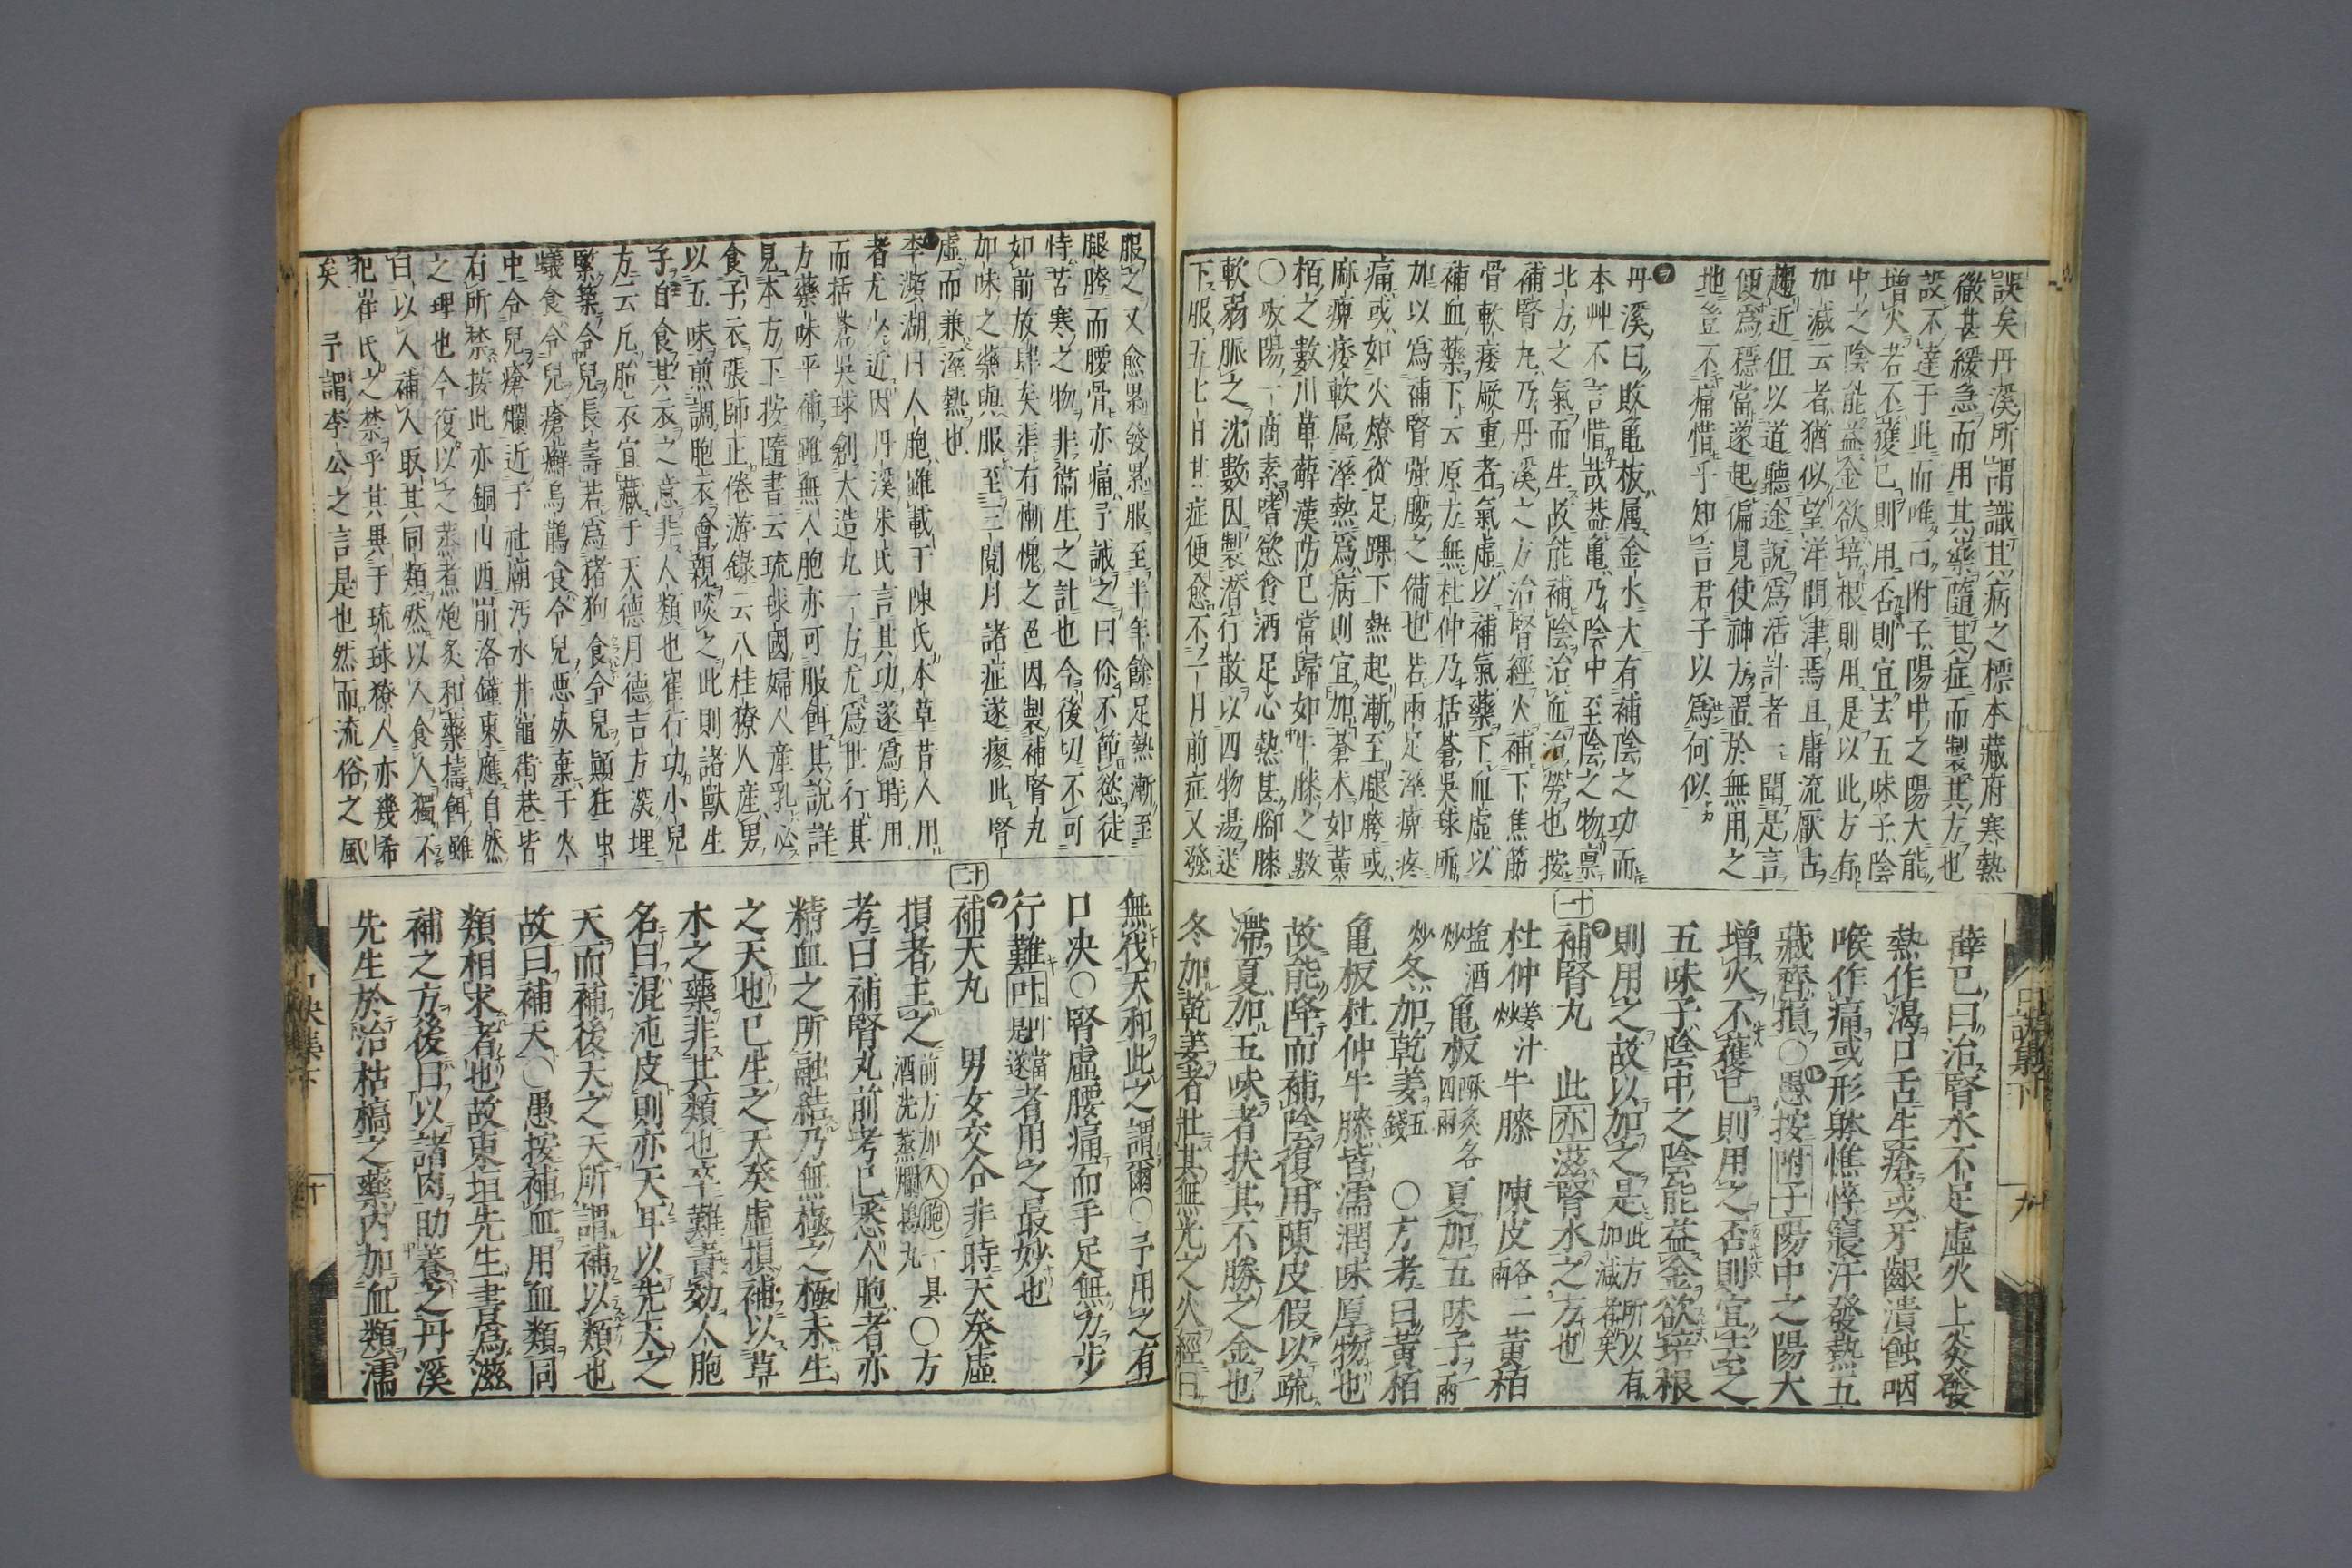 誤矣丹溪所謂識其病之標本藏府寒熱
微甚緩急而用其藥隨其症而製其方也
設不達于此而唯曰附子陽中之陽大能
增火若不獲已則用否則宜去五味子陰
中之陰能益金欲培根則用是以此方有
加減云者猶似望洋問津焉且庸流厭古
趨近但以道聽途説爲活計者一聞是言
便爲穩當遂起偏見使神方置於無用之
地豈不痛惜乎知言君子以爲何似
丹溪曰敗亀板属金水大有補陰之功而
本艸不言惜哉葢亀乃陰中至陰之物禀
北方之氣而生故能補陰治血治勞也按
補腎丸乃丹溪之方治腎經火補下焦筋
骨軟痿厥重者氣虛以補氣藥下血虛以
補血藥下云原方無杜仲乃括蒼吳球所
加以爲補腎强腰之備也若兩足溼痺疼
痛或如火燎從足踝下熱起漸至腿胯或
麻痺痿軟属溼熱爲病則宜加蒼朮如黄
栢之數川萆薢漢防已當歸如牛膝之數
〇一商素嗜慾食酒足心熱甚腳膝
軟弱脈之沈數因製潛行散以四物湯送
下服五七日其症便愈不一月前症又發
薛已曰治腎水不足虛火上炎發
熱作渇口舌生瘡或牙齦潰蝕咽
喉作痛或形躰憔悴寢汗發熱五
藏齊損〇愚按附子陽中之陽大
增火不獲已則用之否則宜去之
五味子陰中之陰能益金欲培根
則用之故以加之是此方所以有
加減者矣
十一
補腎丸 此亦滋腎水之方也
杜仲姜汁炒 牛膝 陳皮各二兩 黄栢
塩酒炒 亀板酥炙各四兩 夏加五味子一兩
炒冬加乾姜五錢 〇方考曰黄栢
亀板杜仲牛膝皆濡潤味厚物也
故能降而補陰復用陳皮假以疏
滯夏加五味者扶其不勝之金也
冬加乾姜者壯其無光之火經曰
服之又愈累發累服至半年餘足熱漸至
腿胯而腰骨亦痛予誡之曰你不節慾徒
恃苦寒之物非節生之計也今後切不可
如前放肆矣渠有慚愧之色因製補腎丸
加味之藥與服至三閲月諸症遂瘳此腎
虛而兼溼熱也
李瀕湖曰人胞雖載于陳氏本草昔人用
者尤少近因丹溪朱氏言其功遂爲時用
而括蒼吳球創大造丸一方尤爲世行其
方藥味平補雖無人胞亦可服餌其説詳
見本方下按隨書云琉球國婦人産乳必
食子衣張師正倦游錄云八桂獠人産男
以五味煎調胞衣會親啖之此則諸獸生
子自食其衣之意非人類也崔行功小兒
方云凡胞衣宜藏于天德月德吉方深埋
緊築令兒長壽若爲猪狗食令兒顚狂虫
蟻食令兒瘡癬烏鵲食令兒悪死棄于火
中令兒瘡爛近于社廟汚水井竈街巷皆
有所禁按此亦銅山西崩洛鐘東應自然
之理也今復以之蒸煮炮炙和藥擣餌雖
曰以人補人取其同類然以人食人獨不
犯崔氏之禁乎其異于琉球獠人亦幾希
矣 予謂李公之言是也然而流俗之風
無伐天和此之謂爾〇予用之有
口决〇腎虛腰痛而手足無力步
行難叶當者用之最妙也
十二
補天丸 男女交合非時天癸虛
損者主之前方加人胞一具
酒洗蒸爛搗丸〇方
考曰補腎丸前考已悉人胞者亦
精血之所融結乃無極之極未生
之天也已生之天癸虛損補以草
木之藥非其類也卒難責効人胞
名曰混沌皮則亦天耳以先天之
天而補後天之天所謂補以類也
故曰補天〇愚按補血用血類同
類相求者也故東垣先生書爲滋
補之方後曰以諸肉助養之丹溪
先生於治枯槁之藥内加血類濡